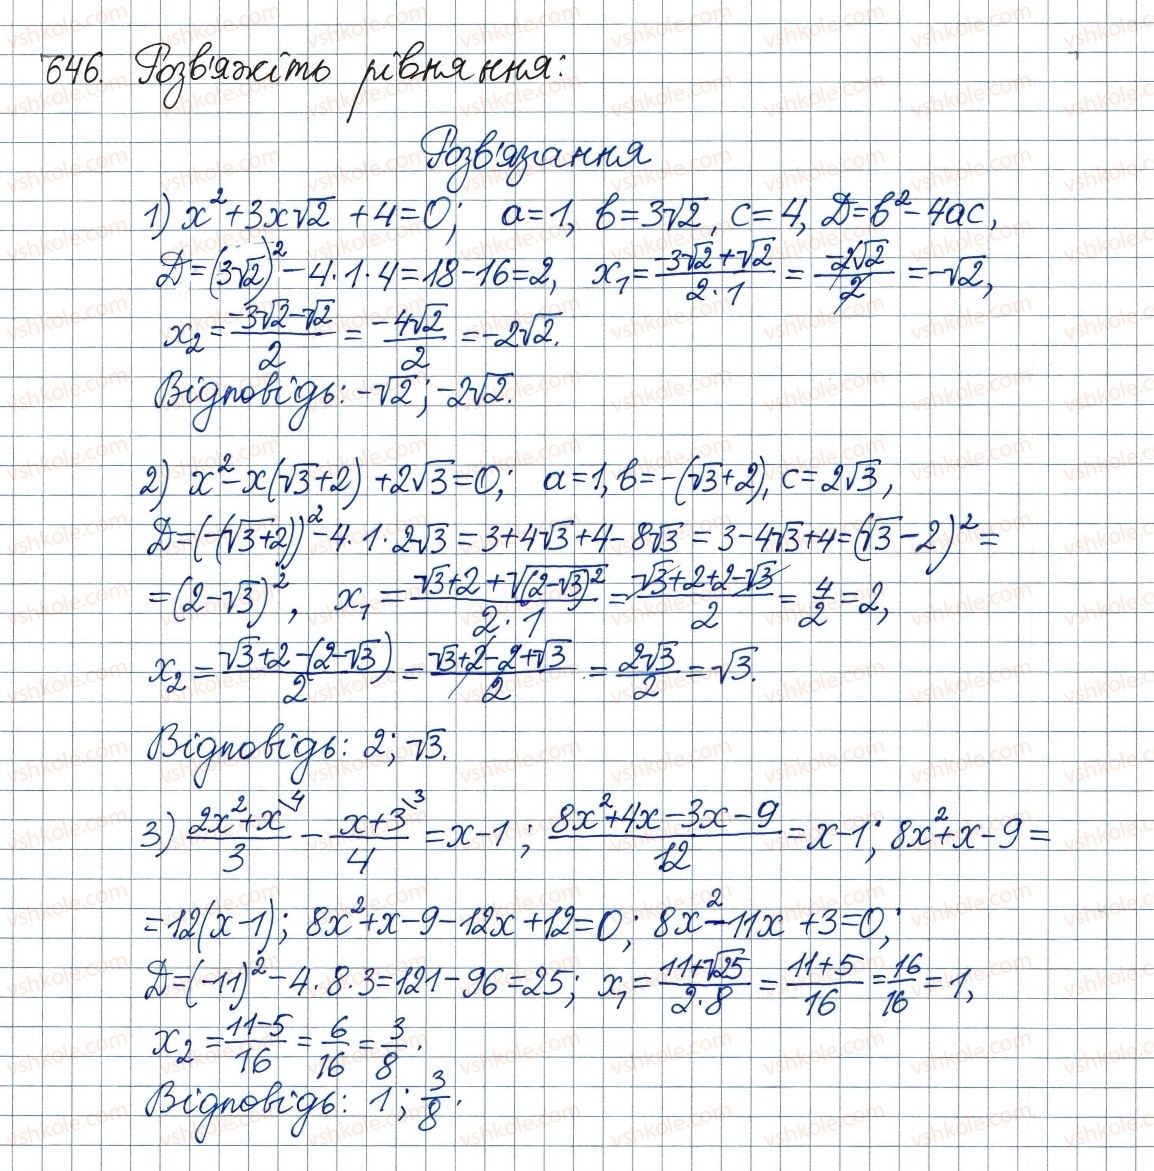 646. Розв'яжіть рівняння:
Розв'язання
1) x² + 3x√2 + 4 = 0; a = 1, b = 3√2, c = 4, D = b² - 4ac,
D = (3√2)² - 4·1·4 = 18 - 16 = 2, x₁ = (-3√2 + √2)/(2·1) = (-2√2)/2 = -√2,
x₂ = (-3√2 - √2)/2 = (-4√2)/2 = -2√2.
Відповідь: -√2; -2√2.
2) x² - x(√3 + 2) + 2√3 = 0; a = 1, b = -(√3 + 2), c = 2√3,
D = (-(√3 + 2))² - 4·1·2√3 = 3 + 4√3 + 4 - 8√3 = 3 - 4√3 + 4 = (√3 - 2)² =
= (2 - √3)², x₁ = (√3 + 2 + √(2 - √3)²)/(2·1) = (√3 + 2 + 2 - √3)/2 = 4/2 = 2,
x₂ = (√3 + 2 - (2 - √3))/2 = (√3 + 2 - 2 + √3)/2 = (2√3)/2 = √3.
Відповідь: 2; √3.
3) (2x² + x)\4/3 - (x + 3)\3/4 = x - 1; (8x² + 4x - 3x - 9)/12 = x - 1; 8x² + x - 9 =
= 12(x - 1); 8x² + x - 9 - 12x + 12 = 0; 8x² - 11x + 3 = 0;
D = (-11)² - 4·8·3 = 121 - 96 = 25; x₁ = (11 + √25)/(2·8) = (11 + 5)/16 = 16/16 = 1,
x₂ = (11 - 5)/16 = 6/16 = 3/8.
Відповідь: 1; 3/8.